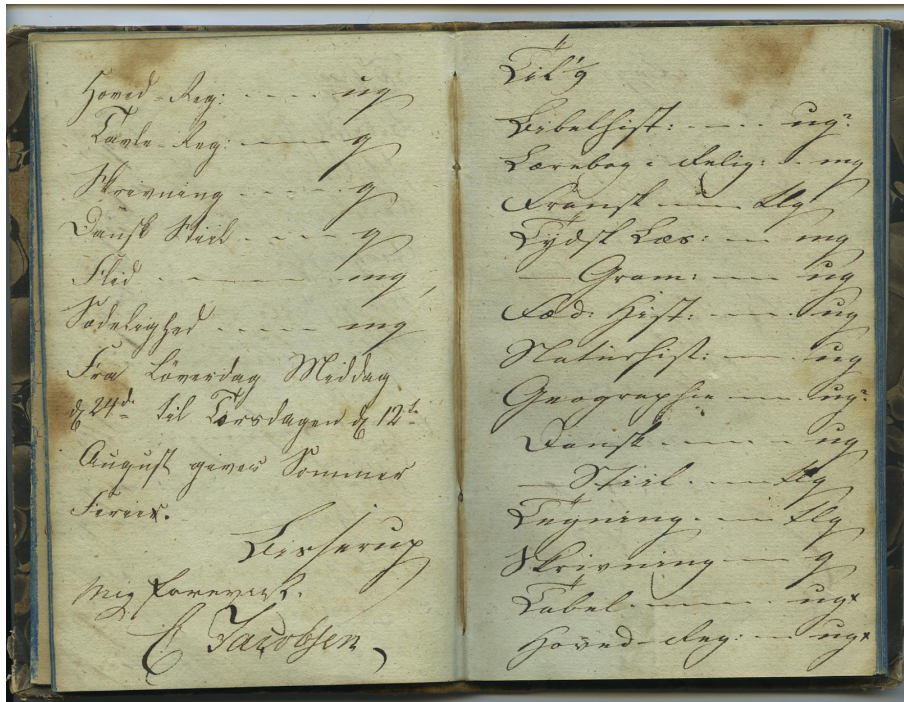 Hoved-Reg: - - - - ug
Tavle-Reg: - - - g
Skrivning - - - - g
Dansk Stiil - - - g
Flid - - - - - mg
Sædelighed - - - - - mg
Fra Löverdag Middag
d. 24de til Torsdagen d. 12te
August gives Sommer
Ferier.
Bisserup
Mig forevist.
C Jacobsen
Bibelhist: - - - ug?
Lærebog i Relig: - mg
Fransk - - - tlg
Tydsk Læs: - mg
— Gram: - - ug
Fæd: Hist: - - - ug
Naturhist: - - ug
Geographie - - ug?
Dansk - - - - ug
— Stiil - - tlg
Tegning - - tlg
Skrivning - - g
Tabel - - - - ug+
Hoved-Reg: - - ug+